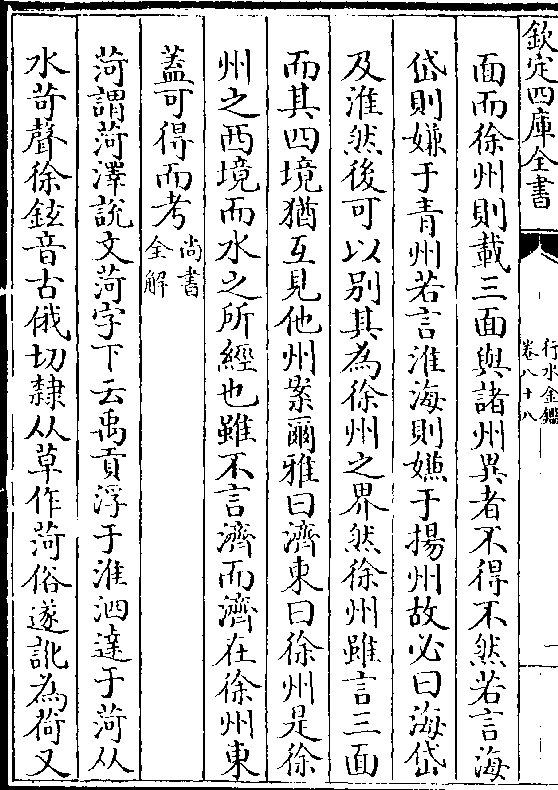 欽定四庫全書
行水金鑑
卷八十八
一
面而徐州則載三面與諸州異者不得不然若言海
岱則嫌于青州若言淮海則嫌于揚州故必曰海岱
及淮然後可以別其為徐州之界然徐州雖言三面
而其四境猶互見他州案爾雅曰濟東曰徐州是徐
州之西境而水之所經也雖不言濟而濟在徐州東
蓋可得而考尚書全解
菏謂菏澤說文菏字下云禹貢浮于淮泗達于菏从
水苛聲徐鉉音古俄切隸从草作菏俗遂訛為荷又